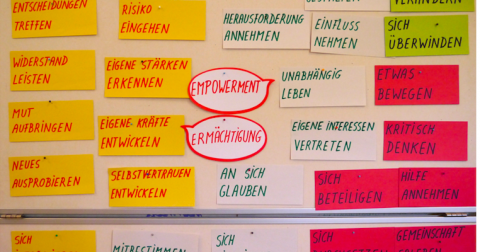 ENTSCHEIDUNGEN
TREFFEN
RISIKO
EINGEHEN
HERAUSFORDERUNG
ANNEHMEN
EINFLUSS
NEHMEN
VERÄNDERN
SICH
ÜBERWINDEN
WIDERSTAND
LEISTEN
EIGENE STÄRKEN
ERKENNEN
EMPOWERMENT
UNABHÄNGIG
LEBEN
ETWAS-
BEWEGEN
MUT
AUFBRINGEN
EIGENE KRÄFTE
ENTWICKELN
ERMÄCHTIGUNG
EIGENE INTERESSEN
VERTRETEN
KRITISCH
DENKEN
NEUES
AUSPROBIEREN
SELBSTVERTRAUEN
ENTWICKELN
AN SICH
GLAUBEN
SICH
BETEILIGEN
HILFE
ANNEHMEN
SICH
MITBESTIMMEN
SICH
SICH
GEMEINSCHAFT